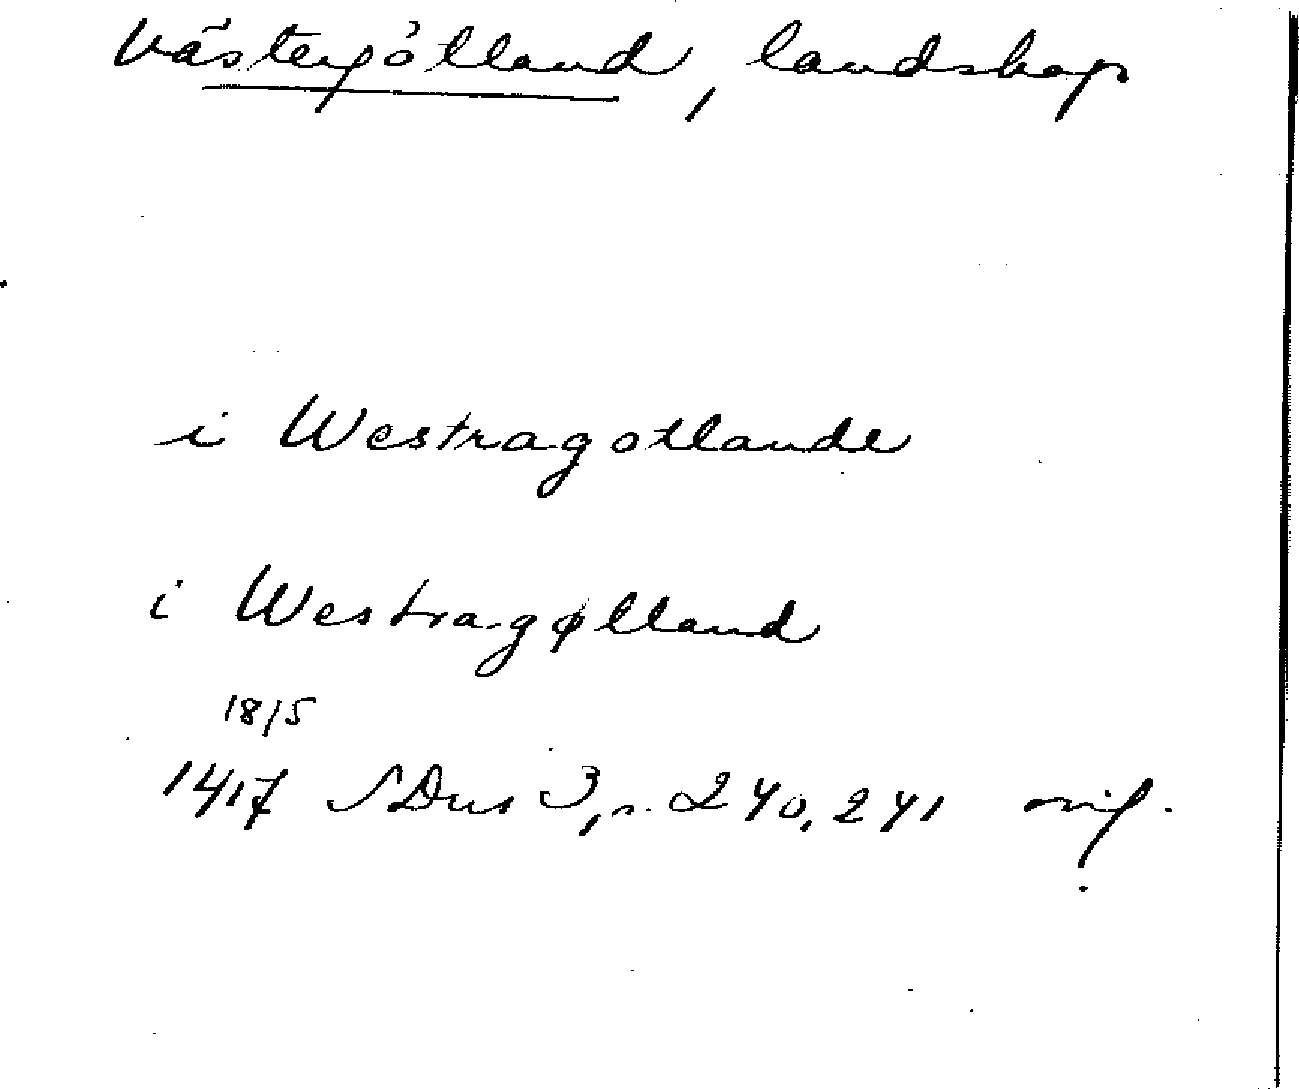 Västergötland, landskap
i Westragotlande
i Westragøtland
18/5
1417 SDns 3, s. 240, 241 orig.